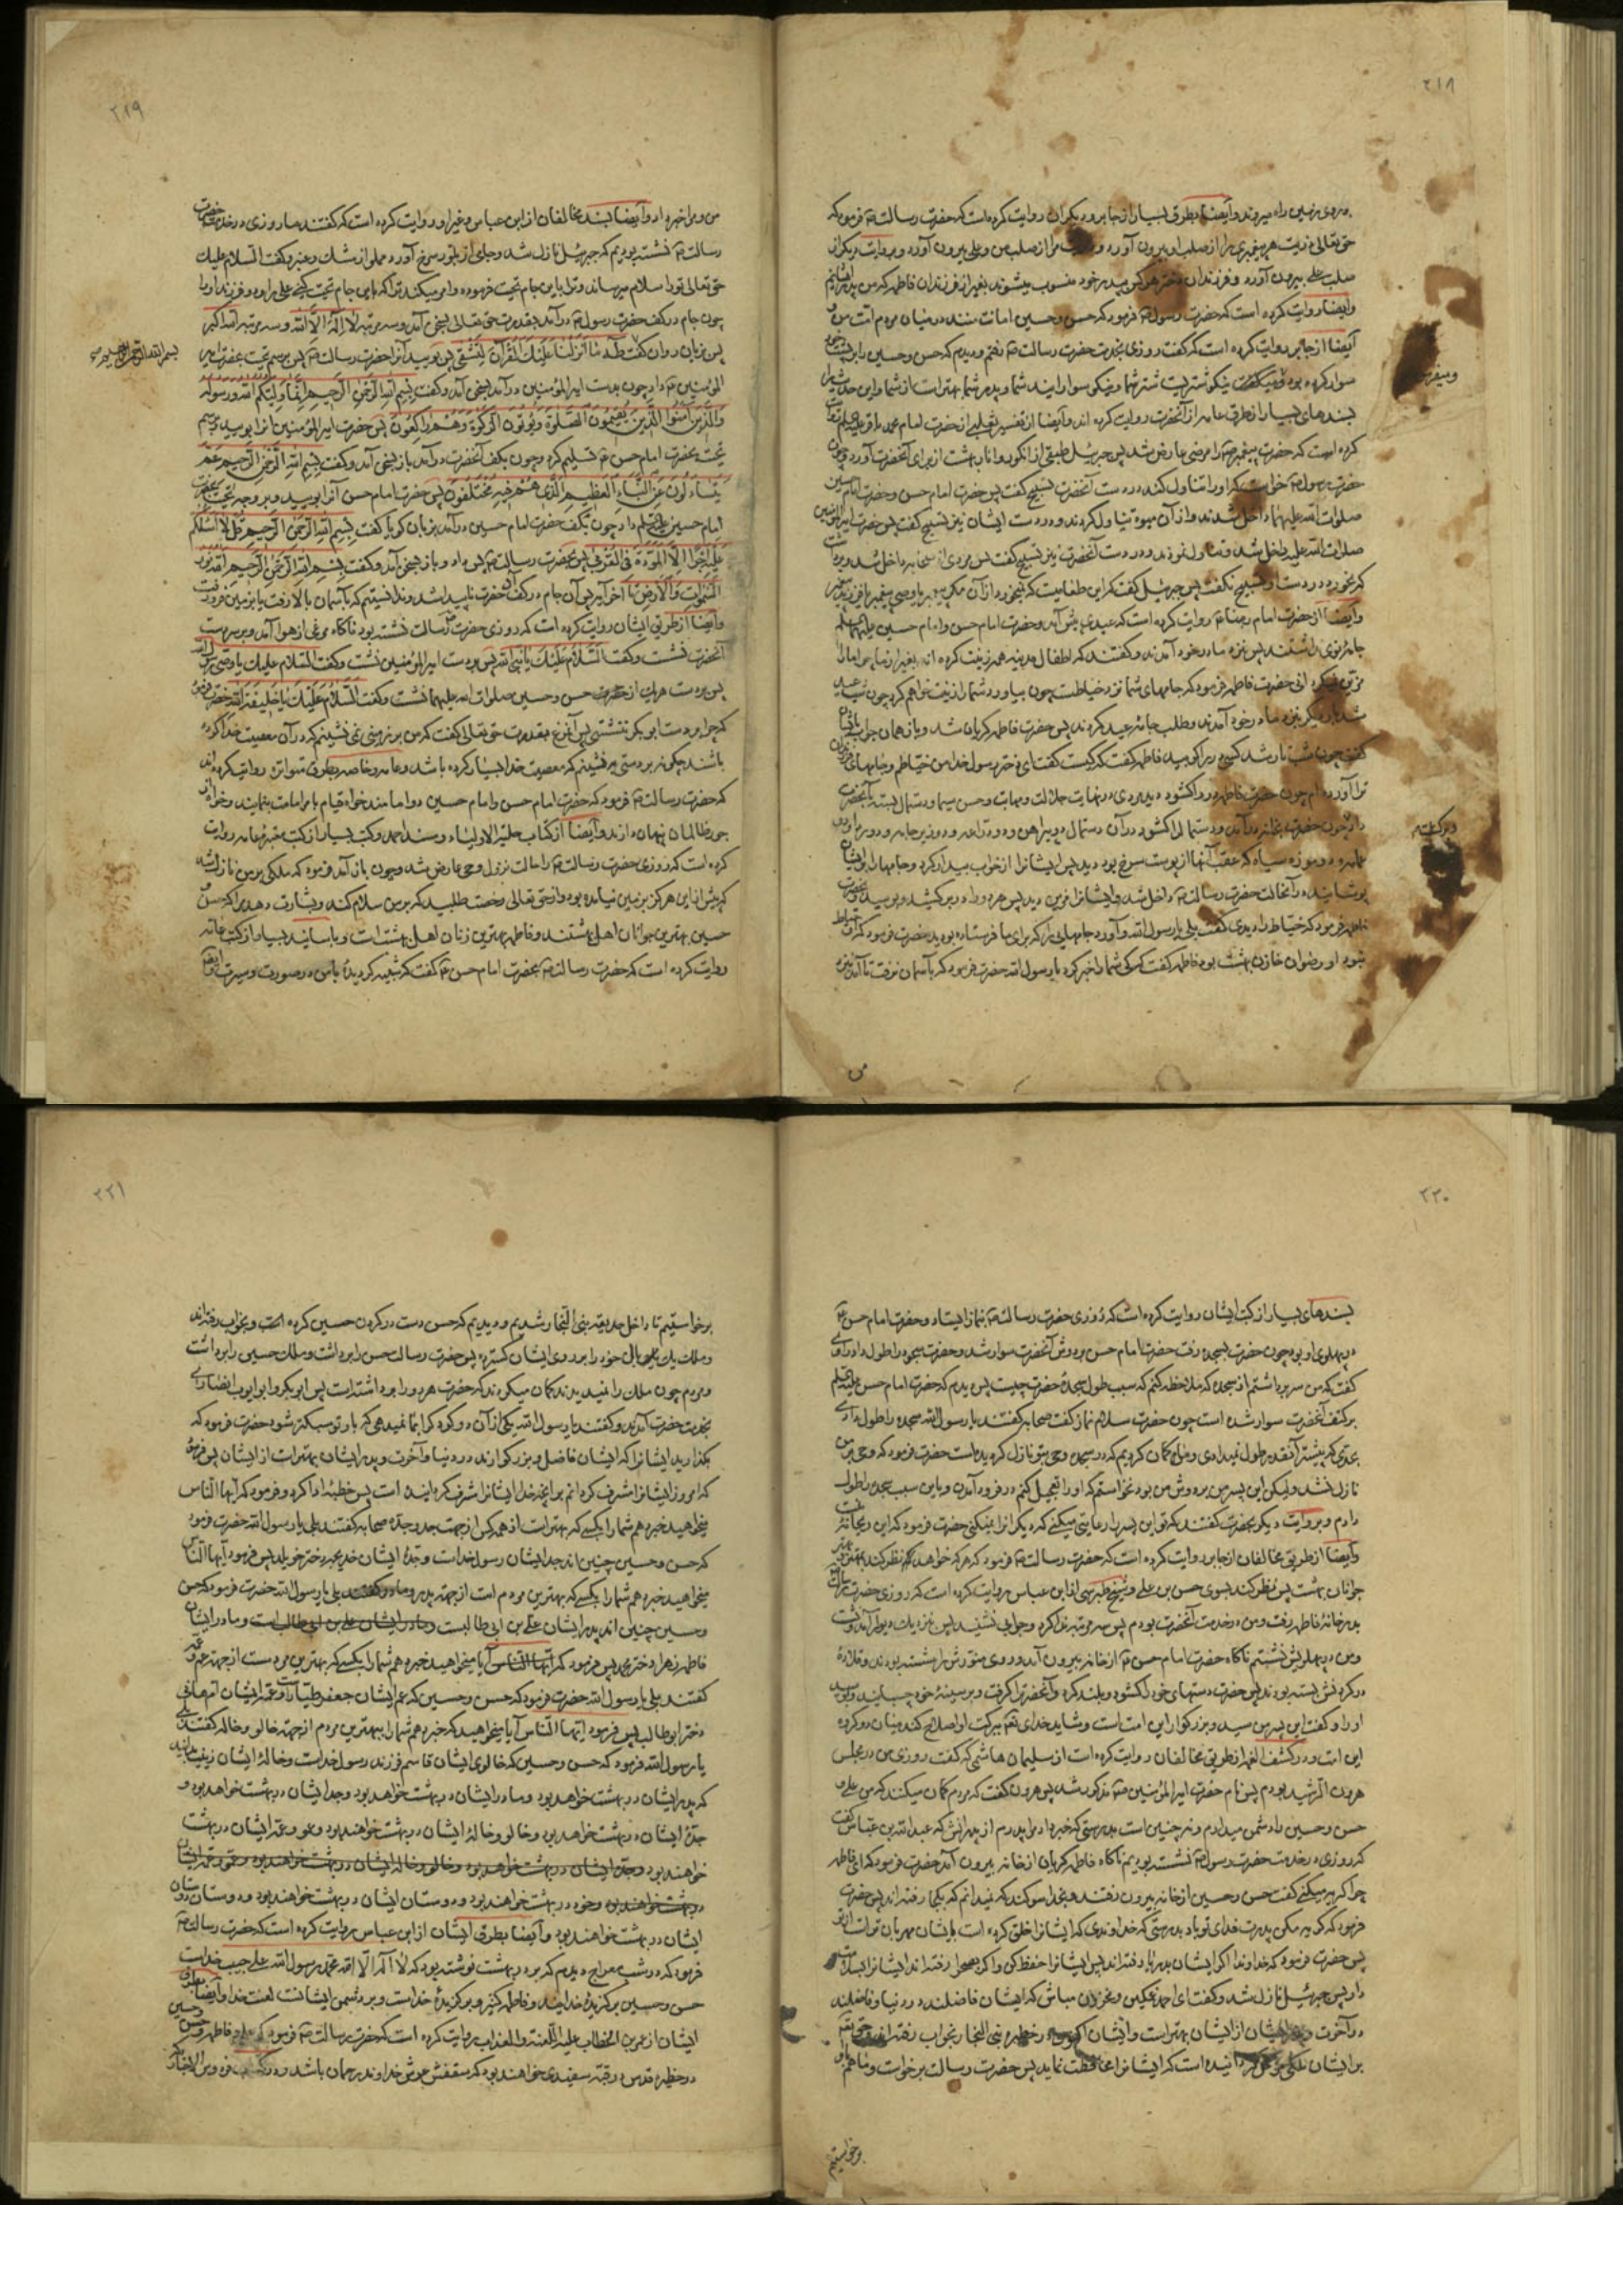 ۲۱۸
بر روی زمین راه میروند وأیضا بطرق بسیار از جابر و دیگران روایت کرده است که حضرت رسالت فرمود که
حق تعالی ذریت هر پیغمبری را از صلب او بیرون آورد و مرا از صلب من و علی بیرون آورد و بروایت دیگر از
صلب علی بیرون آورد و فرزندان هر کس بپدر خود منسوب میشوند بغیر از فرزندان فاطمه که من پدر ایشانم
وایضا روایت کرده است که حضرت رسول فرمود که حسن وحسین امانت منند در میان مردم امت من و
أیضا از جابر روایت کرده است که گفت روزی بخدمت حضرت رسالت رفتم ودیدم که حسن وحسین را بر پشت
سوار کرده بود و میگفت نیکو شتریست شتر شما و نیکو سوارانید شما و پدر شما بهتر است از شما و این حدیث را
بسندهای بسیار از طرق عامه از آنحضرت روایت کرده اند وأیضا از تفسیر ثعلبی از حضرت امام محمد باقر روایت
کرده است که حضرت پیغمبر را مرضی عارض شد پس جبرئیل طبقی از انگور وانار بهشت از برای آنحضرت آورد و چون
حضرت رسول خواست که او را تناول کند در دست آنحضرت تسبیح گفت پس حضرت امام حسن وحضرت امام حسین
صلوات الله علیهما داخل شدند واز آن میوه تناول کردند و در دست ایشان نیز تسبیح گفت پس حضرت امیر المؤمنین
صلوات الله علیه داخل شد و تناول نمود و در دست آنحضرت نیز تسبیح گفت پس مردی از صحابه داخل شد و برداشت
که بخورد در دست او تسبیح نگفت پس جبرئیل گفت که این طعامیست که نمیخورد از آن مگر پیغمبر یا وصی پیغمبر یا فرزند پیغمبر
وأیضا از حضرت امام رضا روایت کرده است که عیدی پیش آمد وحضرت امام حسن وامام حسین علیهما السلام
جامه نوی نداشتند پس بنزد مادر خود آمدند و گفتند که اطفال مدینه همه زینت کرده اند بغیر از ما چرا ما را
مزین نمیکردانی حضرت فاطمه فرمود که جامهای شما نزد خیاطست چون بیاورد شما را زینت خواهم کرد چون شب عید
شد بار دیگر بنزد مادر خود آمدند وطلب جامه عید کردند پس حضرت فاطمه گریان شد و باز همان جواب بایشان
گفت چون شب تار شد کسی در را کوبید فاطمه گفت که کیست گفت ای دختر رسول خدا من خیاطم و جامهای فرزندان
ترا آورده ام چون حضرت فاطمه در را گشود دید مردی در نهایت جلالت و مهابت و حسن سیما و دستمال بسته بآنحضرت
داد چون حضرت بخانه درآمد و دستمال را گشود در آن دستمال دو پیراهن و دو دراعه و دو زیر جامه و دو ردا و دو
عمامه و دو موزه سیاه که عقب آنها از پوست سرخ بود دید پس ایشانرا از خواب بیدار کرد و جامها را بر ایشان
پوشانید در آنحالت حضرت رسالت داخل شد و ایشانرا مزین دید پس هر دو را در بر کشید و بوسید حضرت
فاطمه فرمود که خیاط را دیدی گفت بلی یا رسول الله و آورد جامهایی را که برای ما فرستاده بودید حضرت فرمود که او خیاط
نبود او رضوان خازن بهشت بود فاطمه گفت که کی شما را خبر کرد یا رسول الله حضرت فرمود که بآسمان نرفت تا آمد بنزد
من
۲۱۹
من و مرا خبر داد وأیضا بسند مخالفان از ابن عباس وغیر او روایت کرده است که گفتند ما روزی در خدمت حضرت
رسالت نشسته بودیم که جبرئیل نازل شد وجامی از بلور سرخ آورد مملو از مشک وعنبر وگفت السلام علیک
حق تعالی تو را سلام میرساند وترا باین جام تحیت فرموده وامر میکند ترا که باین جام تحیت کنی علی را و دو فرزند او را
چون جام در کف حضرت رسول درآمد بقدرت حق تعالی بسخن آمد وسه مرتبه لا إله إلا الله وسه مرتبه الله اکبر
پس بزبان روان گفت طه ما أنزلنا علیک القرآن لتشقی پس بوسید آنرا حضرت رسالت پس برسم تحیت بحضرت امیر
بسم الله الرحمن الرحیم
المؤمنین داد چون بدست امیر المؤمنین درآمد بسخن آمد وگفت بسم الله الرحمن الرحیم إنما ولیکم الله ورسوله
والذین آمنوا الذین یقیمون الصلوة ویؤتون الزکوة وهم راکعون پس حضرت امیر المؤمنین آنرا بوسید وبرسم
تحیت بحضرت امام حسن تسلیم کرد وچون بکف آنحضرت درآمد باز بسخن آمد وگفت بسم الله الرحمن الرحیم عم
یتساءلون عن النباء العظیم الذی هم فیه مختلفون پس حضرت امام حسن آنرا بوسید وبر وجه تحیت بحضرت
امام حسین علیه السلام داد چون بکف حضرت امام حسین درآمد بزبان گویا گفت بسم الله الرحمن الرحیم قل لا أسئلکم
علیه أجرا إلا المودة فی القربی پس بحضرت رسالت پس داد و باز بسخن آمد وگفت بسم الله الرحمن الرحیم الله نور
السموات والأرض تا آخر آیه پس آن جام در کف آنحضرت ناپیدا شد وندانستیم که بآسمان بالا رفت یا بزمین فرو رفت
وأیضا از طریق ایشان روایت کرده است که روزی حضرت رسالت نشسته بود ناگاه مرغی از هوا آمد وبر سر دست
آنحضرت نشست وگفت السلام علیک یا نبی الله پس بر دست امیر المؤمنین نشست وگفت السلام علیک یا وصی رسول الله
پس بر دست هریک از حضرت حسن وحسین صلوات الله علیهما نشست وگفت السلام علیک یا خلیفة الله حضرت فرمود
که چرا بر دست ابو بکر ننشستی پس آنمرغ بقدرت حق تعالی گفت که من بر زمینی نمی نشینم که در آن معصیت خدا کرده
باشند چگونه بر دستی بنشینم که معصیت خدا بسیار کرده باشد وعامه وخاصه بطرق متواتره روایت کرده اند
که حضرت رسالت فرمود که حضرت امام حسن وامام حسین دو امامند خواه قیام بامر امامت بنمایند وخواه از
جور ظالمان پنهان دارند وأیضا از کتاب حلیة الاولیاء ومسند احمد وکتب بسیار از کتب معتبره عامه روایت
کرده است که روزی حضرت رسالت را حالت نزول وحی عارض شد وچون باز آمد فرمود که ملکی بر من نازل شد
که پیش از این هرگز بزمین نیامده بود و از حق تعالی رخصت طلبید که بر من سلام کند وبشارت دهد مرا که حسن و
حسین بهترین جوانان اهل بهشتند وفاطمه بهترین زنان اهل بهشت است وباسانید بسیار از کتب عامه
روایت کرده است که حضرت رسالت بحضرت امام حسن گفت که شبیه گردیده بامن در صورت وسیرت وأیضا
۲۲۰
بسندهای بسیار از کتب ایشان روایت کرده است که روزی حضرت رسالت بنماز ایستاد وحضرت امام حسن
در پهلوی او بود چون حضرت بسجده رفت حضرت امام حسن بر دوش آنحضرت سوار شد وحضرت سجده را طول داد راوی
گفت که من سر برداشتم از سجده که ملاحظه کنم که سبب طول سجده حضرت چیست پس دیدم که حضرت امام حسن علیه السلام
بر کتف آنحضرت سوار شده است چون حضرت سلام نماز گفت صحابه گفتند یا رسول الله سجده را طول دادی
بحدی که پیشتر آنقدر طول نمیدادی وما گمان کردیم که در سجده وحی بتو نازل گردیده است حضرت فرمود که وحی بر من
نازل نشد ولیکن این پسر من بر دوش من بود نخواستم که او را تعجیل کنم در فرود آمدن وباین سبب سجده را طول
دادم وبروایت دیگر بحضرت گفتند که تو این پسر را رعایتی میکنی که دیگر آنرا نمیکنی حضرت فرمود که این ریحانه
وأیضا از طریق مخالفان از جابر روایت کرده است که حضرت رسالت فرمود که هر که خواهد که نظر کند به بهترین
جوانان بهشت پس نظر کند بسوی حسن بن علی وشیخ طبرسی از ابن عباس روایت کرده است که روزی حضرت رسالت
بدر خانه فاطمه رفت ومن در خدمت آنحضرت بودم پس سه مرتبه ندا کرد وجوابی نشنید پس بنزدیک دیوار آمد ونشست
ومن در پهلویش نشستم ناگاه حضرت امام حسن از خانه بیرون آمد و روی منورش را شسته بودند وقلاده
در گردنش بسته بودند پس حضرت دستهای خود را گشود وبلند کرد وآنحضرت را گرفت وبر سینه خود چسبانید وبوسید
او را وگفت این پسر من سید وبزرگوار این امت است وشاید خدای تعالی ببرکت او اصلاح کند میان دو گروه
این امت ودر کشف الغمه از طریق مخالفان روایت کرده است از سلیمان هاشمی که گفت روزی من در مجلس
هرون الرشید بودم پس نام حضرت امیر المؤمنین مذکور شد پس هرون گفت که مردم گمان میکنند که من علی و
حسن وحسین را دشمن میدارم ونه چنین است بدرستی که خبر داد مرا پدرم از پدرانش که عبد الله بن عباس گفت
که روزی در خدمت حضرت رسول نشسته بودیم ناگاه فاطمه گریان از خانه بیرون آمد حضرت فرمود که ای فاطمه
چرا گریه میکنی گفت حسن وحسین از خانه بیرون رفتند وبخدا سوگند که نمیدانم که بکجا رفته اند پس حضرت
فرمود که گریه مکن پدرت فدای تو باد بدرستی که خداوندی که ایشانرا خلق کرده است بایشان مهربان تر است از تو
پس حضرت فرمود که خداوندا اگر ایشان بدریا رفته اند پس ایشانرا حفظ کن واگر بصحرا رفته اند ایشانرا بسلامت
دار پس جبرئیل نازل شد وگفت ای احمد غمگین ومحزون مباش که ایشان فاضلند در دنیا وفاضلند
در آخرت وپدر ایشان از ایشان بهتر است وایشان در حظیره بنی النجار بخواب رفته اند وحق تعالی
بر ایشان ملکی موکل گردانیده است که ایشانرا محافظت نماید پس حضرت رسالت برخواست وما هم با او
برخواستیم
۲۲۱
برخواستیم تا داخل حدیقه بنی النجار شدیم و دیدیم که حسن دست در گردن حسین کرده است وبخواب رفته اند
وملک یک بال خود را بر روی ایشان گسترده پس حضرت رسالت حسن را برداشت وملک حسین را برداشت
ومردم چون ملک را نمیدیدند گمان میکردند که حضرت هر دو را برداشته است پس ابو بکر وابو ایوب انصاری
بخدمت حضرت آمدند وگفتند یا رسول الله یکی از آن دو کودک را بما نمیدهی که بار تو سبکتر شود حضرت فرمود که
بگذارید ایشانرا که ایشان فاضل وبزرگوارند در دنیا وآخرت وپدر ایشان بهتر است از ایشان پس فرمود
که امروز ایشانرا مشرف گردانم بر آنچه خدا ایشانرا مشرف گردانیده است پس خطبه ادا کرد وفرمود که أیها الناس
میخواهید خبر دهم شما را بکسی که بهتر است از همه کس از جهت جد وجده صحابه گفتند بلی یا رسول الله حضرت فرمود
که حسن وحسین چنین اند جد ایشان رسول خداست وجده ایشان خدیجه دختر خویلد پس فرمود أیها الناس
میخواهید خبر دهم شما را بکسی که بهترین مردم است از جهة پدر ومادر گفتند بلی یا رسول الله حضرت فرمود که حسن
وحسین چنین اند پدر ایشان علی بن ابی طالبست ومادر ایشان علی بن ابی طالب است ومادر ایشان
فاطمه زهرا دختر محمد پس فرمود که أیها الناس آیا میخواهید خبر دهم شما را بکسی که بهترین مردمست از جهة عم وعمه
گفتند بلی یا رسول الله حضرت فرمود که حسن وحسین که عم ایشان جعفر طیار است وعمه ایشان ام هانی
دختر ابو طالب پس فرمود أیها الناس آیا میخواهید که خبر دهم شما را ببهترین مردم از جهة خالو وخاله گفتند بلی
یا رسول الله فرمود که حسن وحسین که خالوی ایشان قاسم فرزند رسول خداست وخاله ایشان زینب بدانید
که پدر ایشان در بهشت خواهد بود ومادر ایشان در بهشت خواهد بود وجد ایشان در بهشت خواهد بود و
جده ایشان در بهشت خواهد بود وخالو وخاله ایشان در بهشت خواهند بود وعمو وعمه ایشان در بهشت
خواهند بود وجده ایشان در بهشت خواهد بود وخالو وخاله ایشان در بهشت خواهند بود وعمو وعمه ایشان
در بهشت خواهند بود وخود در بهشت خواهند بود ودوستان ایشان در بهشت خواهند بود ودوستان دوستان
ایشان در بهشت خواهند بود وأیضا بطرق ایشان از ابن عباس روایت کرده است که حضرت رسالت
فرمود که در شب معراج دیدم که بر در بهشت نوشته بود که لا اله الا الله محمد رسول الله علی حبیب خداست
حسن وحسین برگزیده خدایند وفاطمه کنیز وبرگزیده خداست وبر دشمن ایشانست لعنت خدا وأیضا بطرق
ایشان از عمر بن الخطاب علیه اللعنة والعذاب روایت کرده است که حضرت رسالت فرمود که علی وفاطمه وحسن وحسین
در حظیره قدس در قبه سفیدی خواهند بود که سقفش عرش خداوند رحمان باشد ودر کتاب فردوس الاخبار